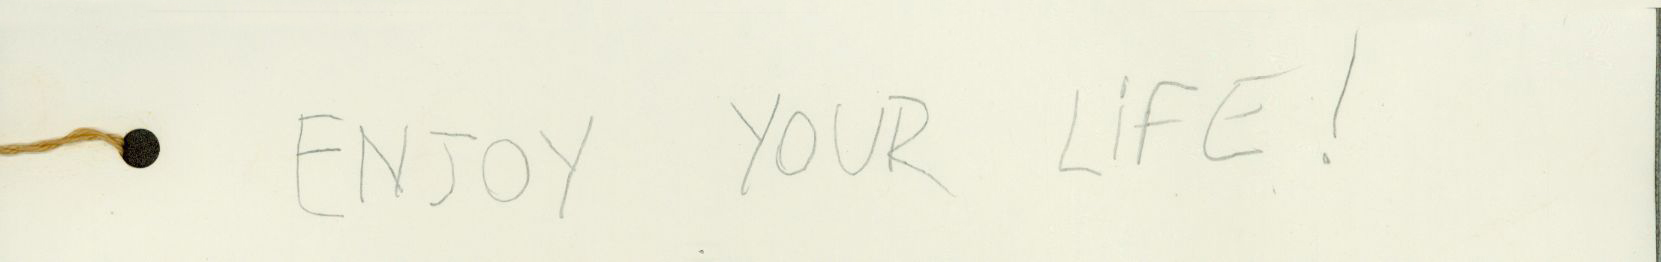 ENJOY YOUR LiFE!